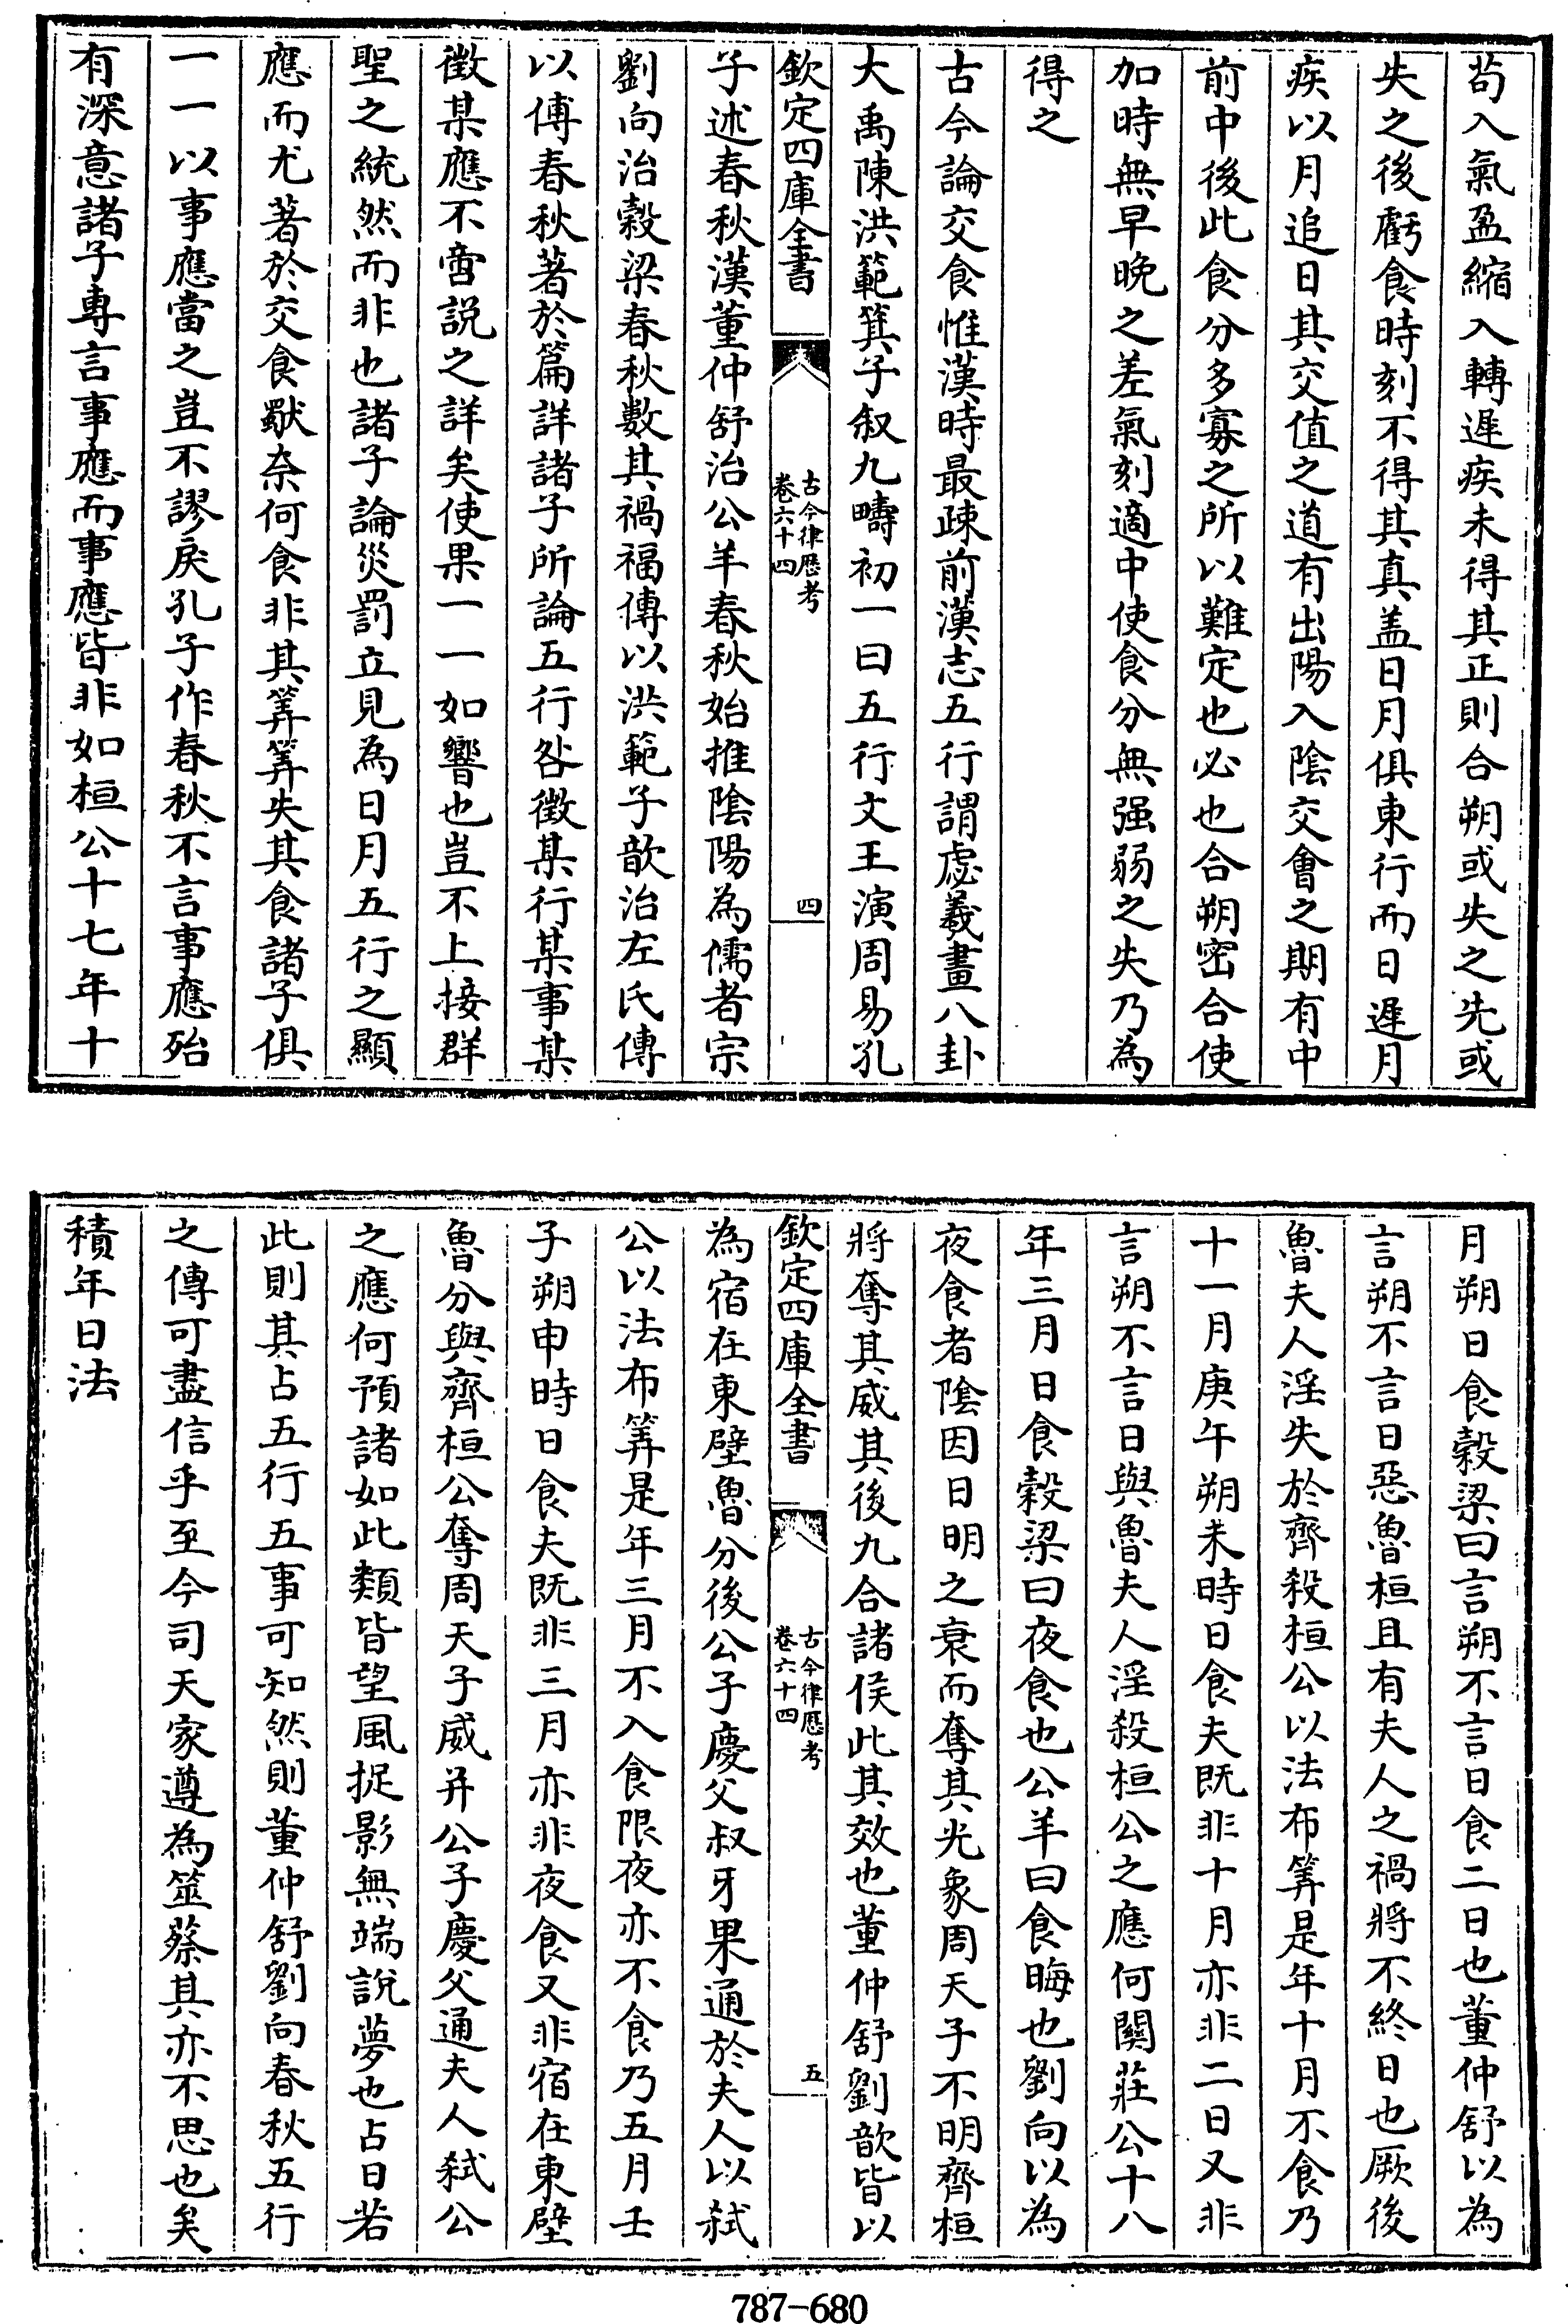 苟入氣盈縮入轉遲疾未得其正則合朔或失之先或
失之後虧食時刻不得其真盖日月俱東行而日遲月
疾以月追日其交值之道有出陽入陰交會之期有中
前中後此食分多寡之所以難定也必也合朔密合使
加時無早晚之差氣刻適中使食分無强弱之失乃為
得之
古今論交食惟漢時最疎前漢志五行謂虙羲畫八卦
大禹陳洪範箕子叙九疇初一曰五行文王演周易孔
欽定四庫全書
古今律歷考
卷六十四
四
子述春秋漢董仲舒治公羊春秋始推陰陽為儒者宗
劉向治穀梁春秋數其禍福傳以洪範子歆治左氏傳
以傅春秋著於篇詳諸子所論五行咎徵某行某事某
徵某應不啻説之詳矣使果一一如響也豈不上接群
聖之統然而非也諸子論災罰立見為日月五行之顯
應而尤著於交食獸奈何食非其筭筭失其食諸子俱
一一以事應當之豈不謬戾孔子作春秋不言事應殆
有深意諸子專言事應而事應皆非如桓公十七年十
月朔日食穀梁曰言朔不言日食二日也董仲舒以為
言朔不言日惡魯桓且有夫人之禍將不終日也厥後
魯夫人淫失於齊殺桓公以法布筭是年十月不食乃
十一月庚午朔未時日食夫既非十月亦非二日又非
言朔不言日與魯夫人淫殺桓公之應何關莊公十八
年三月日食穀梁曰夜食也公羊曰食晦也劉向以為
夜食者陰因日明之衰而奪其光象周天子不明齊桓
將奪其威其後九合諸侯此其效也董仲舒劉歆皆以
欽定四庫全書
古今律歷考
卷六十四
五
為宿在東壁魯分後公子慶父叔牙果通於夫人以弑
公以法布筭是年三月不入食限夜亦不食乃五月壬
子朔申時日食夫既非三月亦非夜食又非宿在東壁
魯分與齊桓公奪周天子威并公子慶父通夫人弑公
之應何預諸如此類皆望風捉影無端說夢也占日若
此則其占五行五事可知然則董仲舒劉向春秋五行
之傳可盡信乎至今司天家遵為筮蔡其亦不思也矣
積年日法
787-680